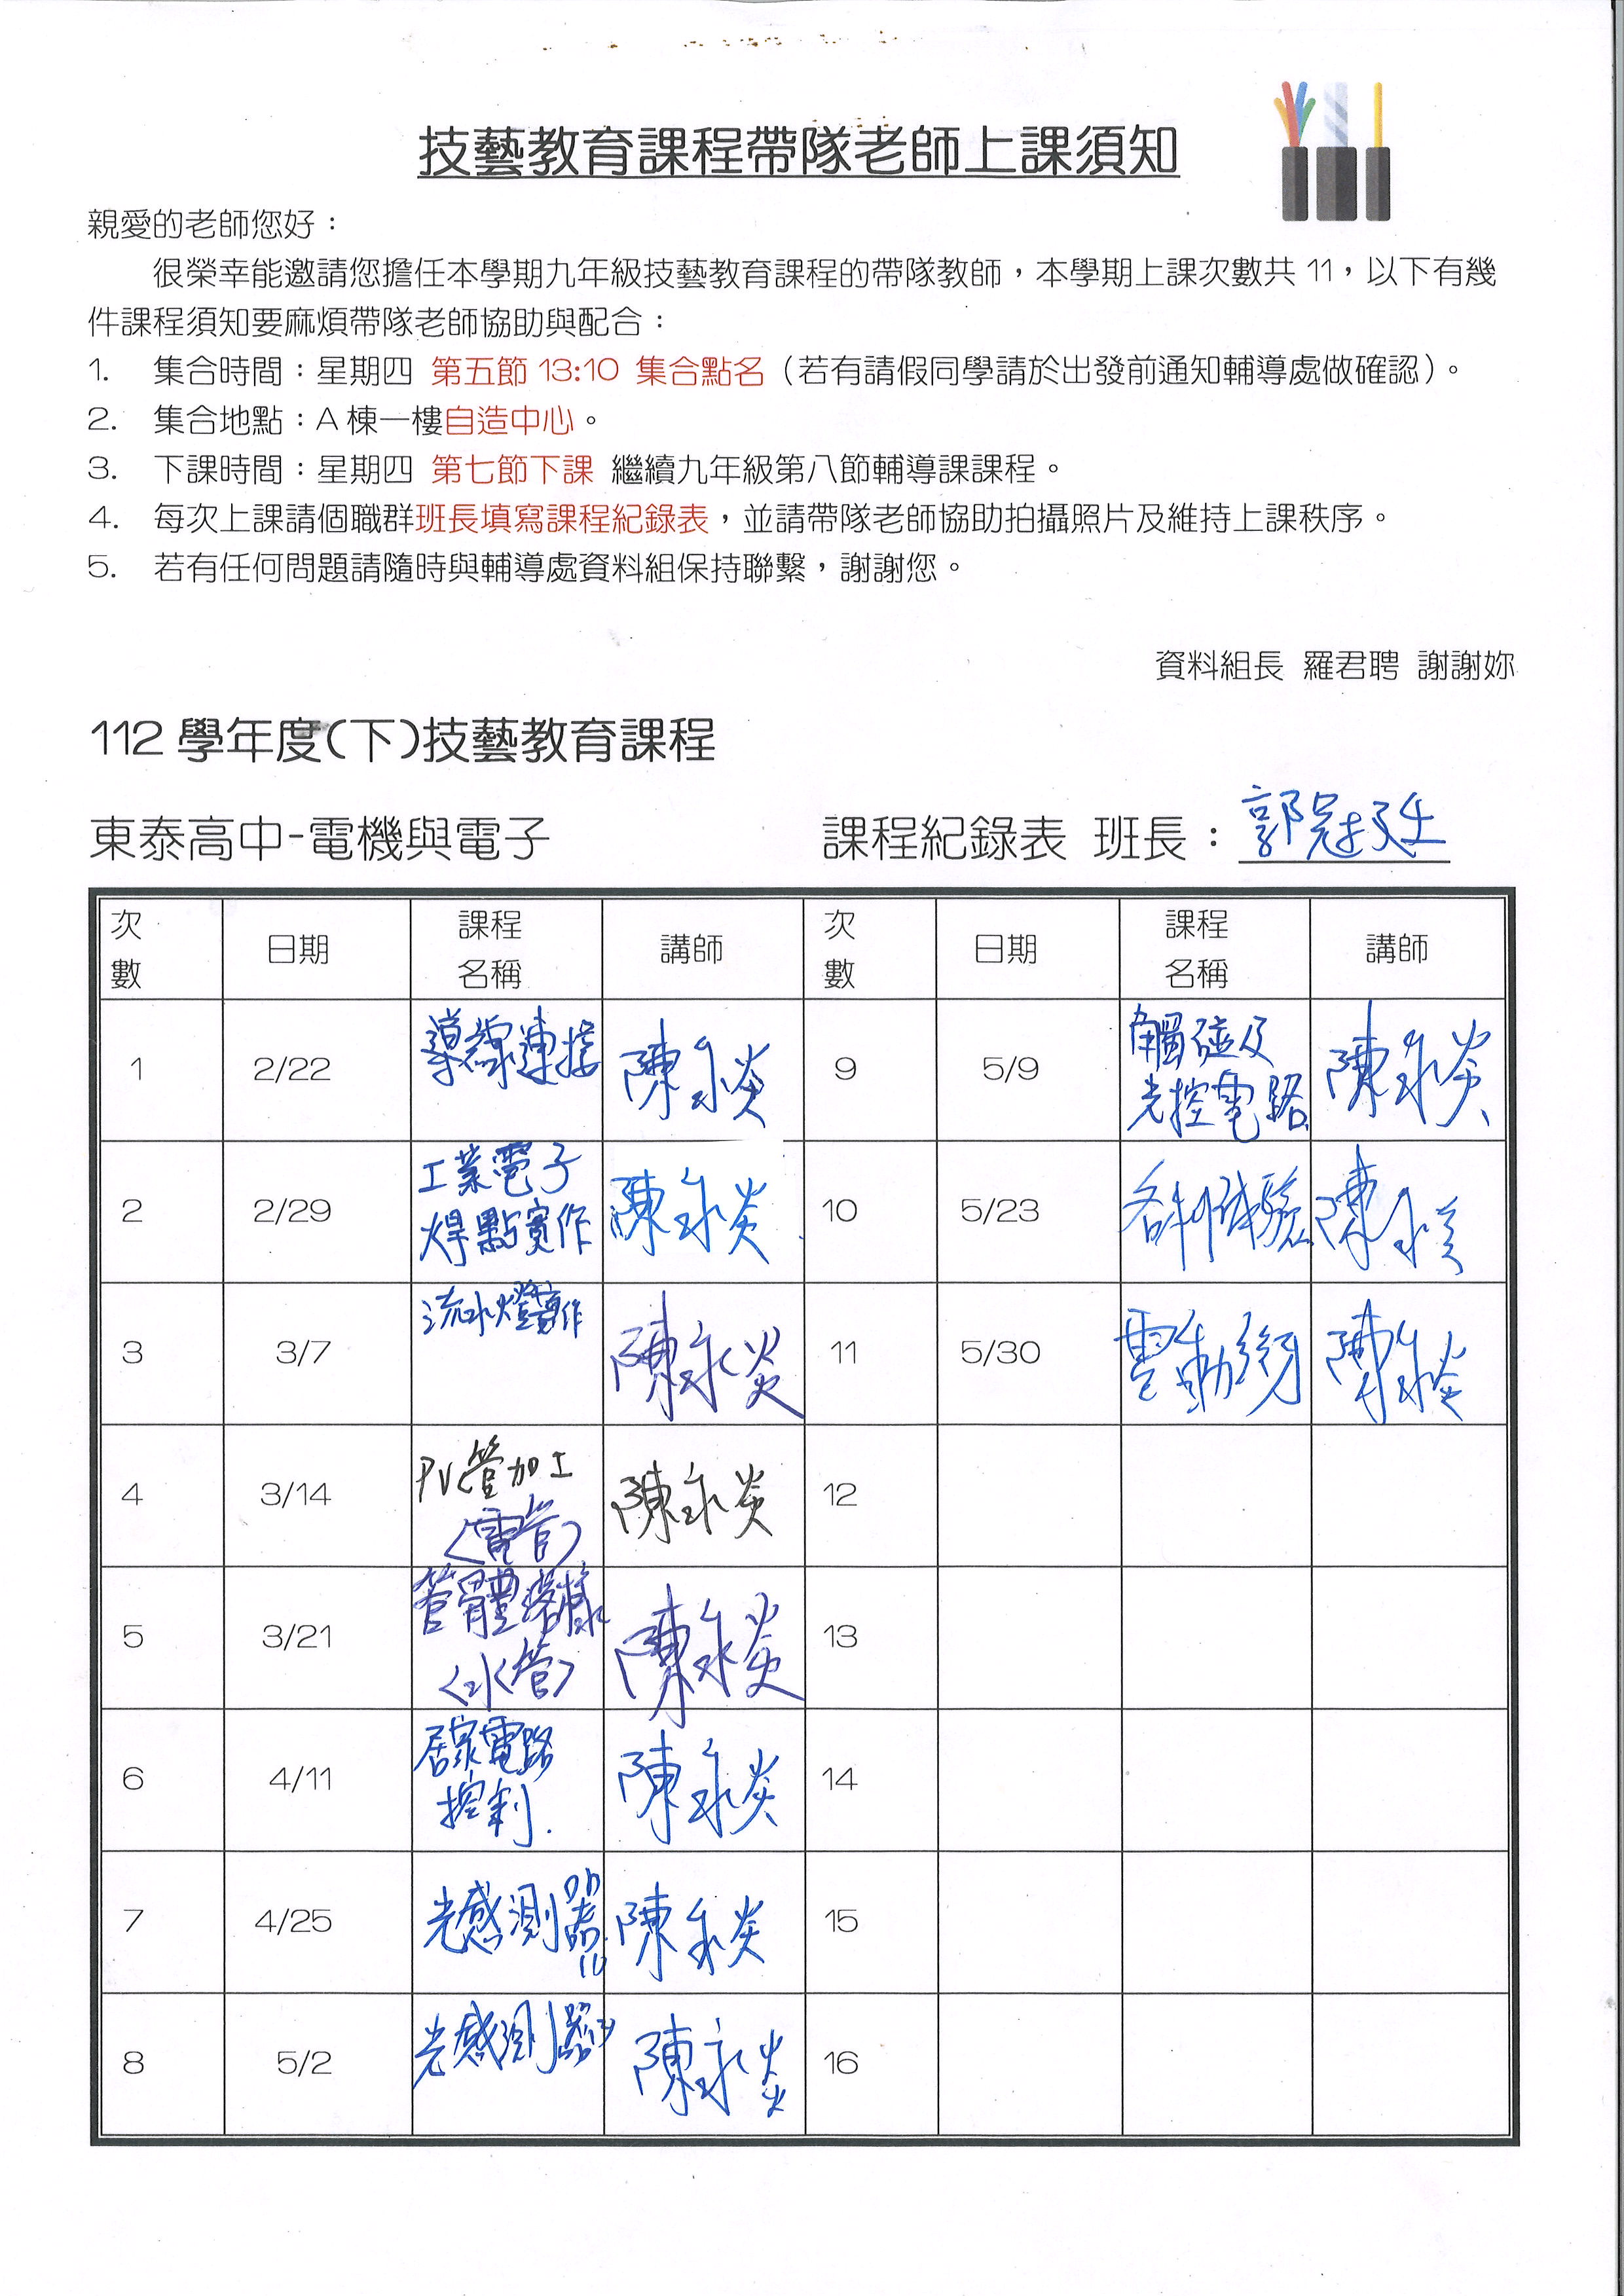 技藝教育課程帶隊老師上課須知
親愛的老師您好：
很榮幸能邀請您擔任本學期九年級技藝教育課程的帶隊教師，本學期上課次數共 11，以下有幾
件課程須知要麻煩帶隊老師協助與配合：
1. 集合時間：星期四 第五節 13:10 集合點名（若有請假同學請於出發前通知輔導處做確認）。
2. 集合地點：A 棟一樓自造中心。
3. 下課時間：星期四 第七節下課 繼續九年級第八節輔導課課程。
4. 每次上課請個職群班長填寫課程紀錄表，並請帶隊老師協助拍攝照片及維持上課秩序。
5. 若有任何問題請隨時與輔導處資料組保持聯繫，謝謝您。
資料組長 羅君聘 謝謝妳
112 學年度(下)技藝教育課程
東泰高中-電機與電子 課程紀錄表 班長：郭冠廷
次數 日期 課程名稱 講師 次數 日期 課程名稱 講師
1 2/22 導線連接 陳永炎 9 5/9 觸碰及光控電路 陳永炎
2 2/29 工業電子焊點實作 陳永炎 10 5/23 各科體驗 陳永炎
3 3/7 流水燈實作 陳永炎 11 5/30 陳永炎
4 3/14 PVC管加工(電管) 陳永炎 12
5 3/21 管體(水管) 陳永炎 13
6 4/11 居家電路控制. 陳永炎 14
7 4/25 光感測器 陳永炎 15
8 5/2 光感測器 陳永炎 16